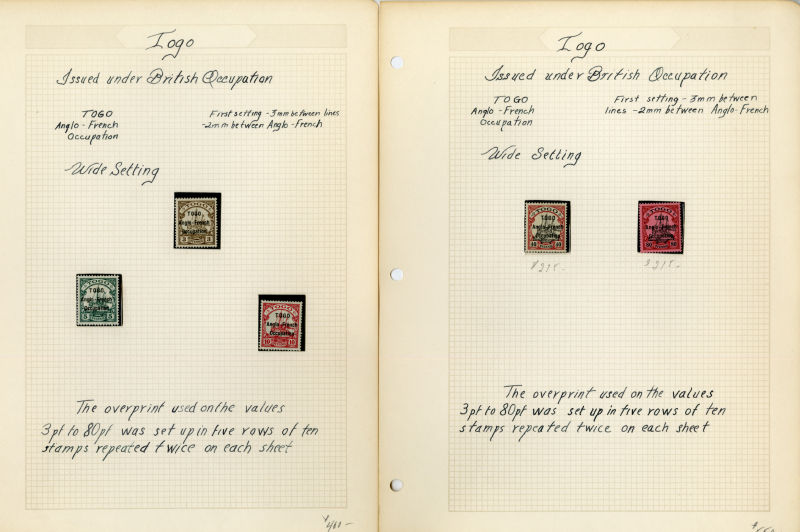 Togo
Issued under British Occupation
TOGO
Anglo-French
Occupation
First setting - 3mm between lines
- 2mm between Anglo-French
Wide Setting
TOGO
TOGO
Anglo-French
Occupation
3 3
TOGO
TOGO
Anglo-French
Occupation
5 5
TOGO
TOGO
Anglo-French
Occupation
10 10
The overprint used on the values
3pf to 80pf was set up in five rows of ten
stamps repeated twice on each sheet
Togo
Issued under British Occupation
TOGO
Anglo-French
Occupation
First setting - 3mm between
lines - 2mm between Anglo-French
Wide Setting
TOGO
TOGO
Anglo-French
Occupation
40 40
TOGO
TOGO
Anglo-French
Occupation
80 80
$215-
$215-
The overprint used on the values
3pf to 80pf was set up in five rows of ten
stamps repeated twice on each sheet